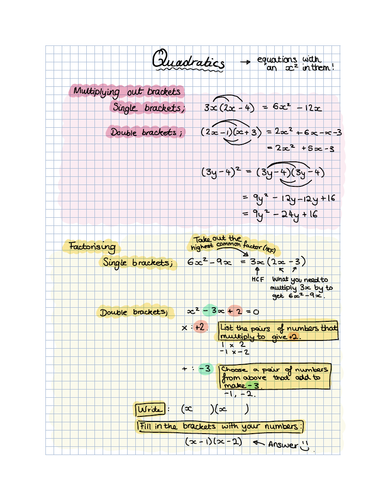 Quadratics → equations with
an x² in them!
Multiplying out brackets
Single brackets; 3x(2x-4) = 6x² - 12x
Double brackets; (2x-1)(x+3) = 2x² + 6x - x - 3
= 2x² + 5x - 3
(3y-4)² = (3y-4)(3y-4)
= 9y² - 12y - 12y + 16
= 9y² - 24y + 16
Factorising
Take out the
highest common factor (HCF)
Single brackets; 6x² - 9x = 3x(2x-3)
HCF What you need to
multiply 3x by to
get 6x² - 9x.
Double brackets; x² - 3x + 2 = 0
x : +2 List the pairs of numbers that
multiply to give +2.
1 x 2
-1 x -2
+ : -3 Choose a pair of numbers
from above that add to
make -3
-1, -2.
Write : (x )(x )
Fill in the brackets with your numbers:
(x-1)(x-2) ← Answer